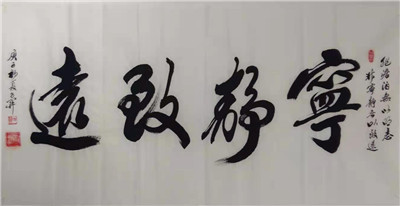 非澹泊無以明志
非寧静無以致遠
寧静致遠
庚子